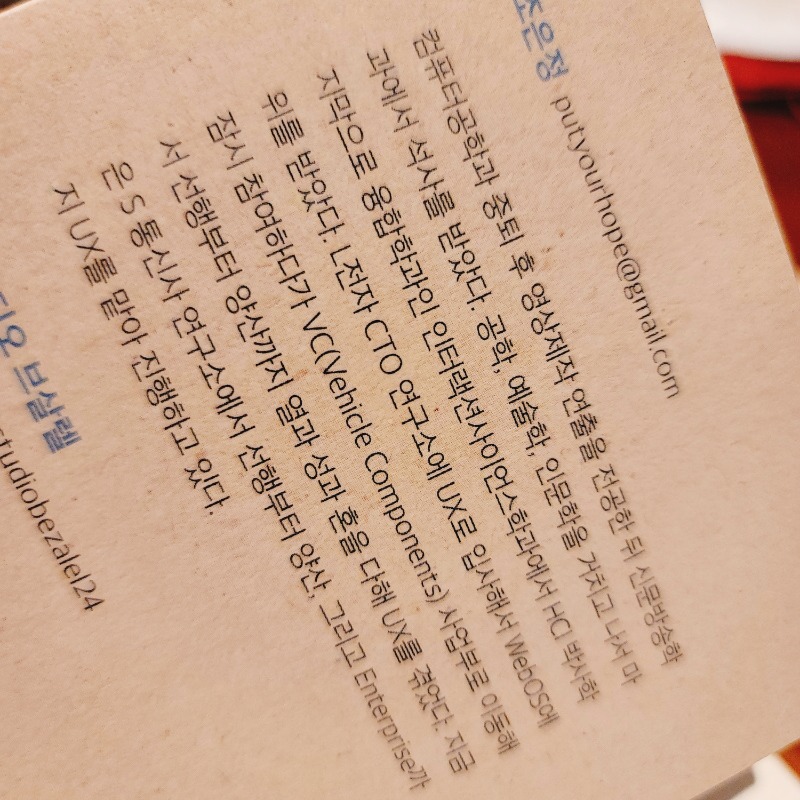 조은정 putyourhope@gmail.com
컴퓨터공학과 중퇴 후 영상제작 연출을 전공한 뒤 신문방송학
과에서 석사를 받았다. 공학, 예술학, 인문학을 거치고 나서 마
지막으로 융합학과인 인터랙션사이언스학과에서 HCI 박사학
위를 받았다. L전자 CTO 연구소에 UX로 입사해서 WebOS에
잠시 참여하다가 VC(Vehicle Components) 사업부로 이동해
서 선행부터 양산까지 열과 성과 혼을 다해 UX를 겪었다. 지금
은 S 통신사 연구소에서 선행부터 양산, 그리고 Enterprise까
지 UX를 맡아 진행하고 있다.
디오 브살렐
studiobezalel24